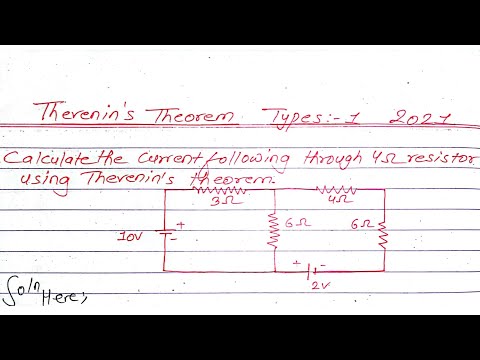 Thevenin's Theorem Types:-1 2021
Calculate the current following through 4Ω resistor
using Thevenin's theorem.
3Ω 4Ω
6Ω 6Ω
10V + -
+ -
2V
Soln Here;